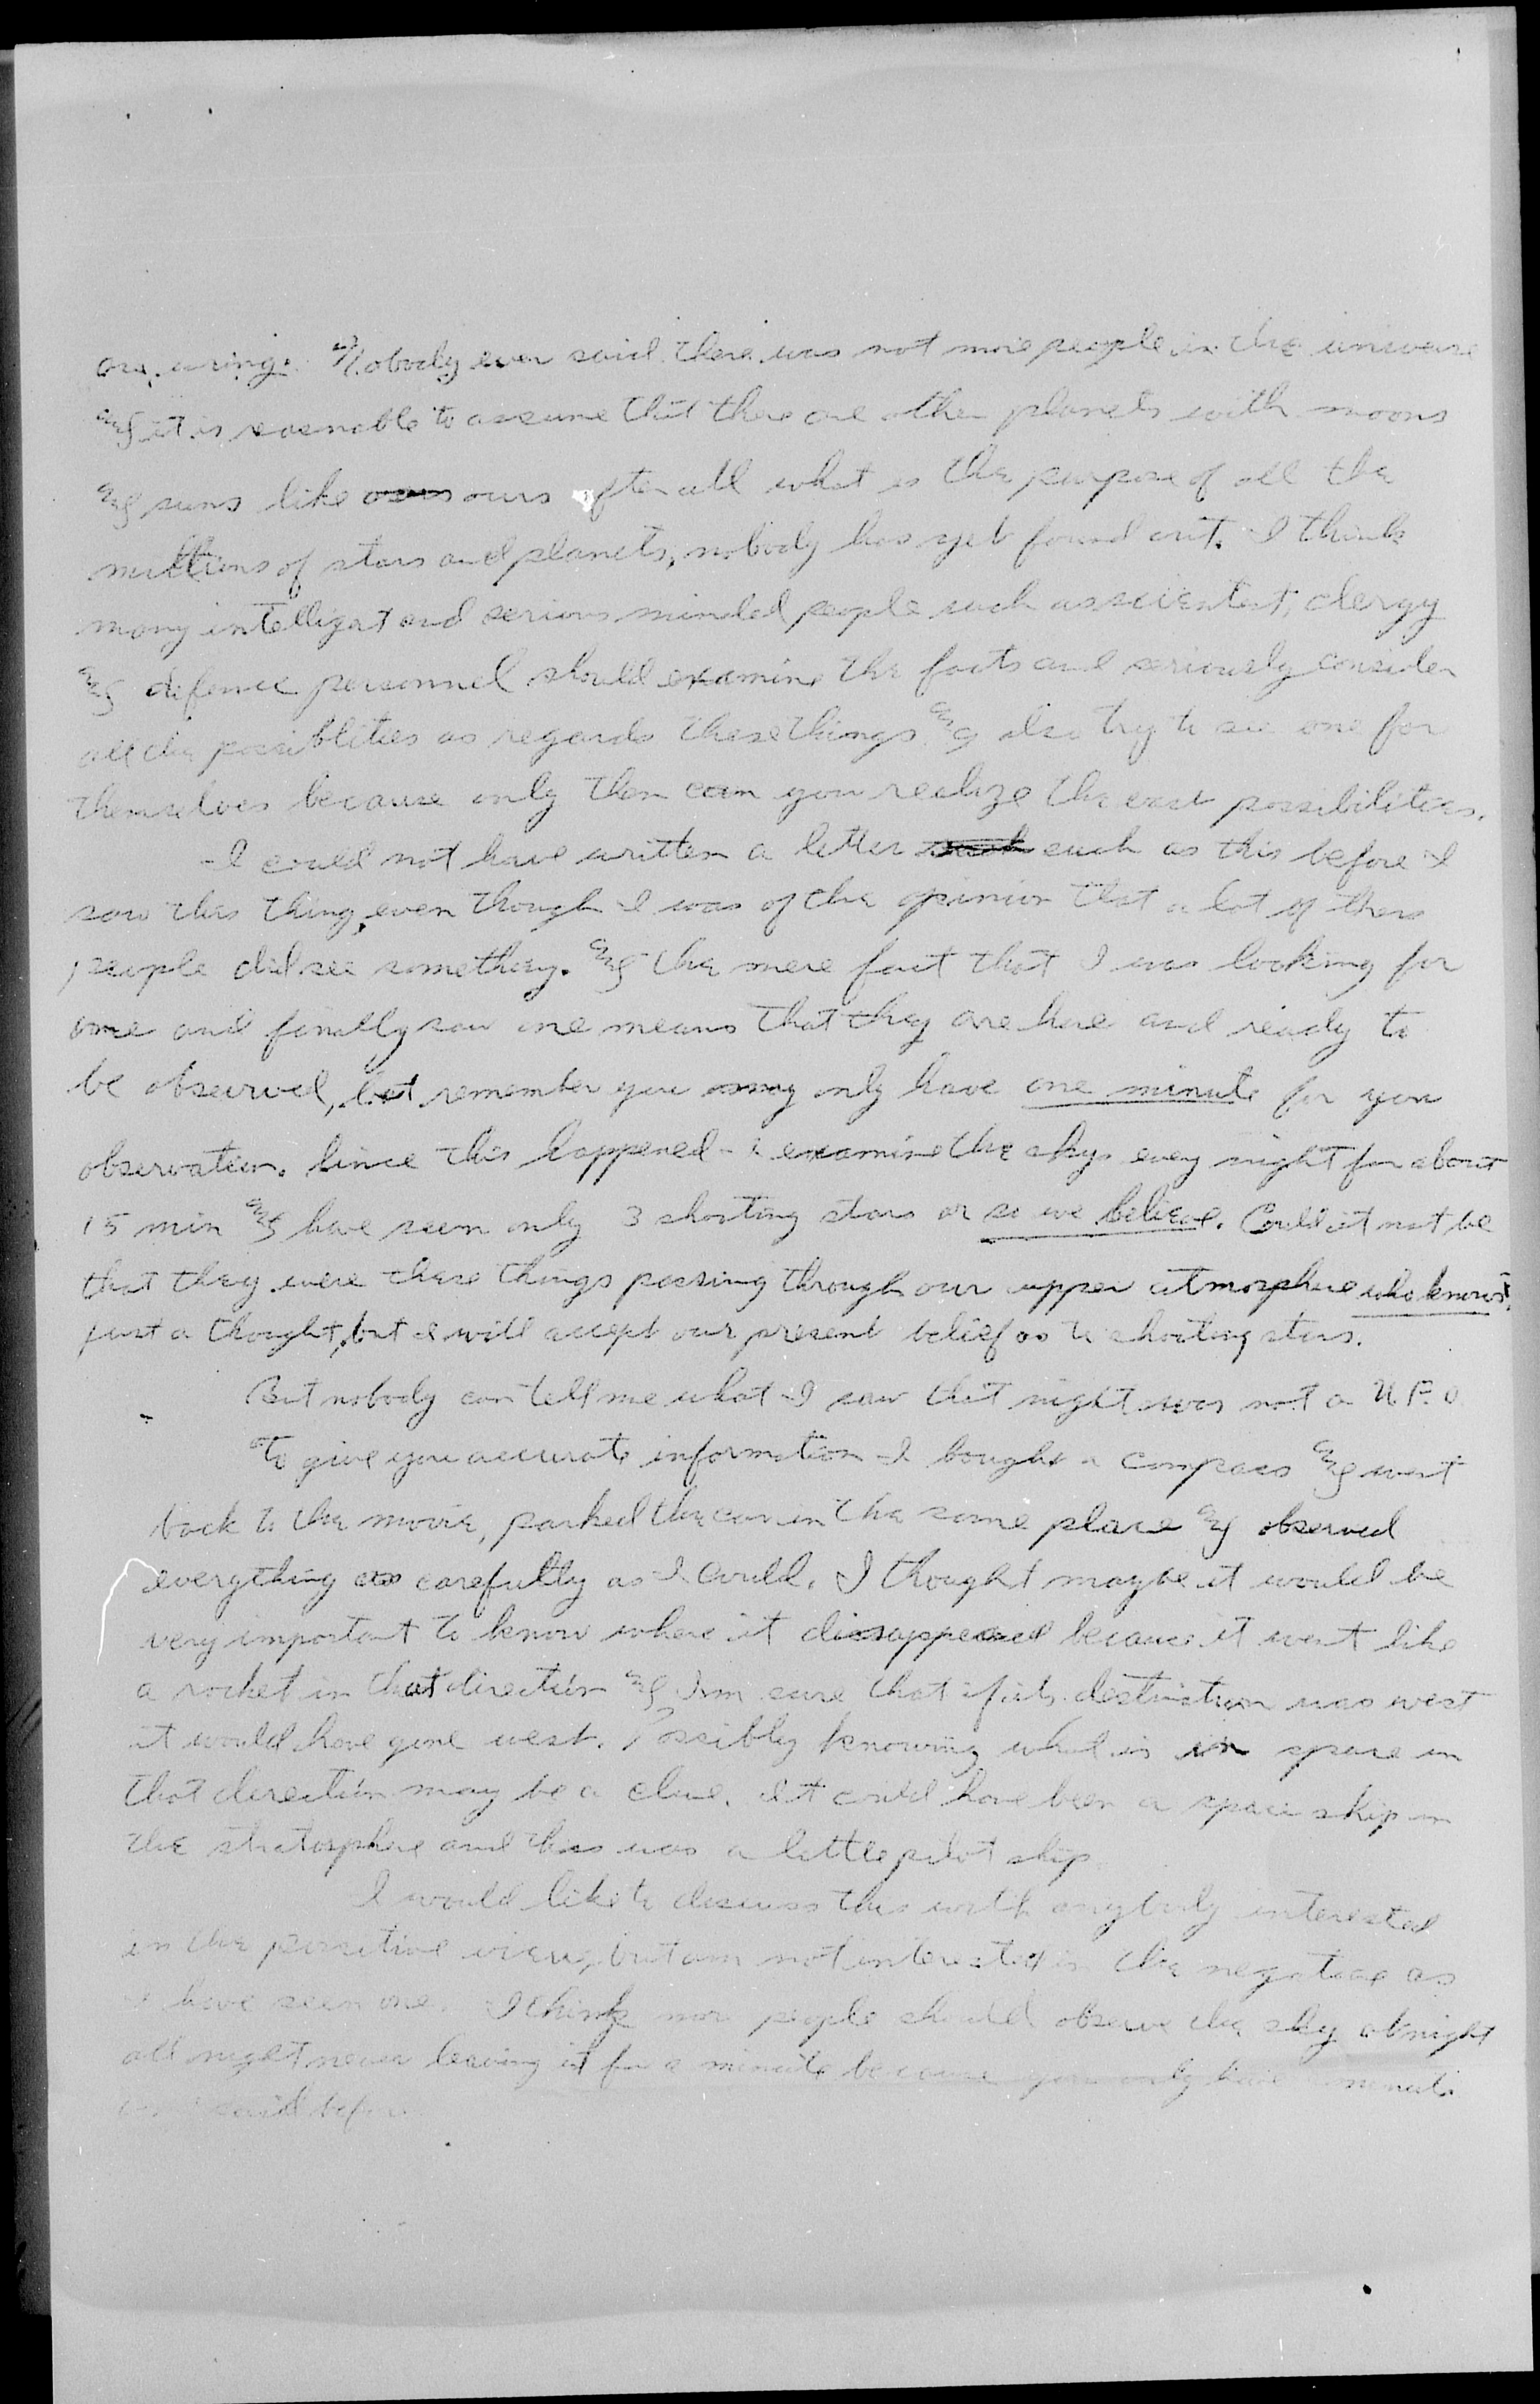 are wrong. Nobody ever said there was not more people in the universe
and it is reasnable to assume that there are other planets with moons
and suns like ours after all what is the purpose of all the
millions of stars and planets, nobody has yet found out. I think
many intelligat and serious minded people such as scientest, clergy
and defence personnel should examine the facts and seriously consider
all the possiblities as regards these things and also try to see one for
themselves because only then can you realize the vast possibilities.
I could not have written a letter such as this before I
saw this thing, even though I was of the opinion that a lot of these
people did see something. and the mere fact that I was looking for
one and finally saw one means that they are here and ready to
be observed, but remember you may only have one minute for your
observation. Since this happened I examine the skys every night for about
15 min and have seen only 3 shooting stars or so we believe. Could it not be
that they were these things passing through our upper atmosphere who knows?
just a thought, but I will accept our present belief as to shooting stars.
But nobody can tell me what I saw that night was not a U.F.O.
To give you accurate information I bought a compass and went
back to the movie, parked the car in the same place and observed
everything as carefully as I could. I thought maybe it would be
very important to know where it dissappeared because it went like
a rocket in that direction and I'm sure that if its destination was west
it would have gone west. Possibly knowing what is in space in
that direction may be a clue. It could have been a space ship in
the stratosphere and this was a little pilot ship.
I would like to discuss this with anybody interested
in the positive view, but am not interested in the negative as
I have seen one. I think more people should observe the sky at night
all night never leaving it for a minute because you only have a minute
as I said before